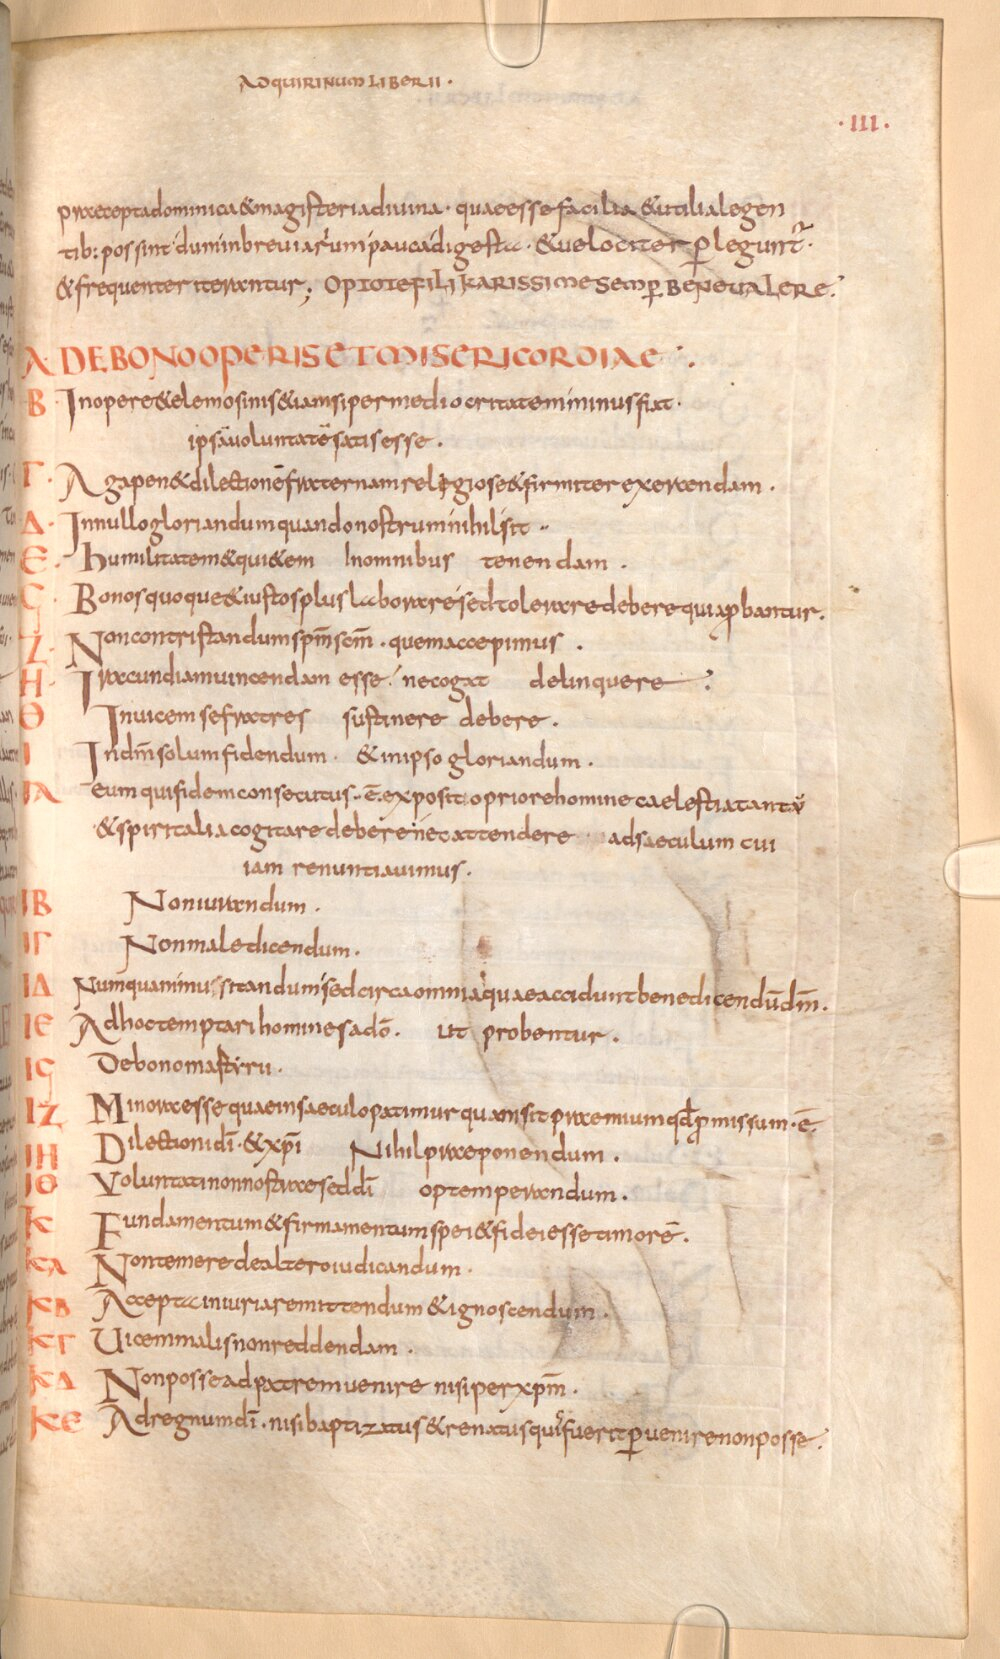 AD QUIRINUM LIBER II ·
· III ·
praecepta dominica & magisteria diuina · quae esse facilia & utilia legen
tib: possint dum in breuiarium pauca digesta · & uelociter p̲legunt̃ ·
& frequenter iterantur; OPTO TE FILI KARISSIME SEMP̲ BENE UALERE ·
A DE BONO OPERIS ET MISERICORDIAE ·
B · In opere & elemosinis & iam si per mediocritatem minus fiat ·
ipsā uoluntatē satis esse ·
Γ · Agapen & dilectionē fraternam religiose & firmiter exercendam ·
Δ · In nullo gloriandum quando nostrum nihil sit ·
Є · humilitatem & qui&em In omnibus tenendam ·
Ϛ · Bonos quoque & iustos plus laborare sed tolerare debere quia p̲bantur ·
Z · Non contristandum sp̄m sc̄m · quem accepimus ·
H · Iracundiam uincendam esse · ne cogat delinquere ·
Θ Inuicem se fratres sustinere debere ·
I In dn̄m solum fidendum · & in ipso gloriandum ·
IA eum qui fidem consecutus · ē · exposito priore homine caelestia tantū
& spiritalia cogitare debere nec attendere ad saeculum cui
iam renuntiauimus ·
IB Non iurandum ·
IΓ Non maledicendum ·
IΔ Numquam mussitandum sed circa omnia quae accidunt benedicendū dm̄ ·
IЄ Ad hoc temptari homines a dō · ut probentur ·
IϚ De bono martyrii ·
IZ Minora esse quae in saeculo patimur quam sit praemium qd̄ p̲missum · ē ·
IH Dilectioni dī · & xp̄i Nihil praeponendum ·
IΘ Voluntati non nostrae sed dī optemperandum ·
K Fundamentum & firmamentum spei & fidei esse timorē ·
KA Non temere de altero iudicandum ·
KB Accepta iniuria remittendum & ignoscendum ·
KΓ Uicem malis non reddendam ·
KΔ Non posse ad patrem uenire nisi per xp̄m ·
KЄ Ad regnum dī · nisi baptizatus & renatus quis fuerit p̲uenire non posse ·